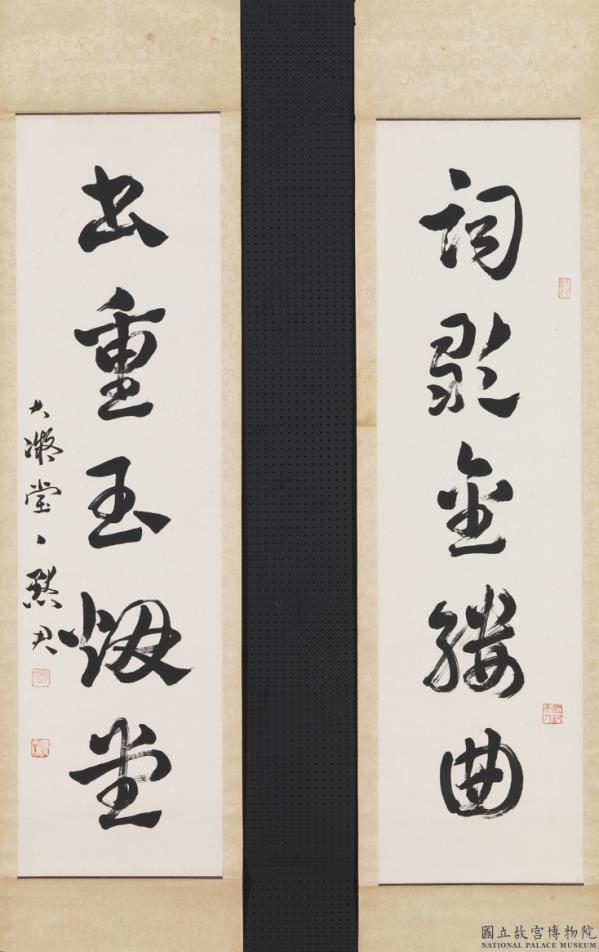 詞歌金縷曲
書重玉煙堂
大凝堂默君
國立故宮博物院
NATIONAL PALACE MUSEUM